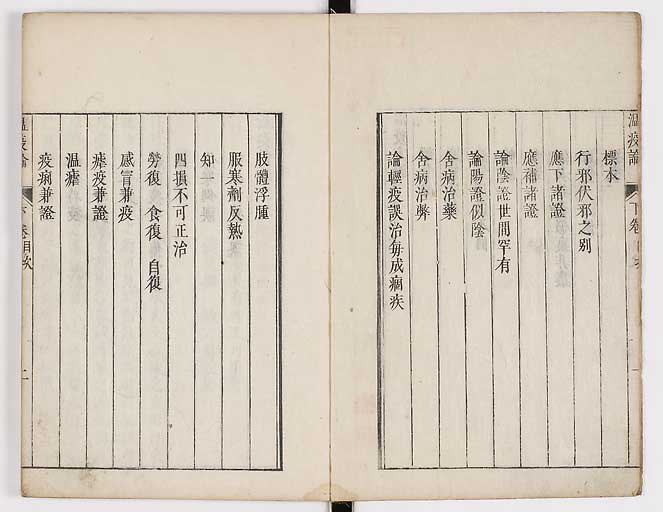 溫疫論 下卷目次 一
標本
行邪伏邪之别
應下諸證
應補諸證
論陰證世間罕有
論陽證似陰
舍病治藥
舍病治弊
論輕疫誤治每成痼疾
肢體浮腫
服寒劑反熱
知一
四損不可正治
勞復 食復 自復
感冒兼疫
瘧疫兼證
溫瘧
疫痢兼證
溫疫論 下卷目次 二